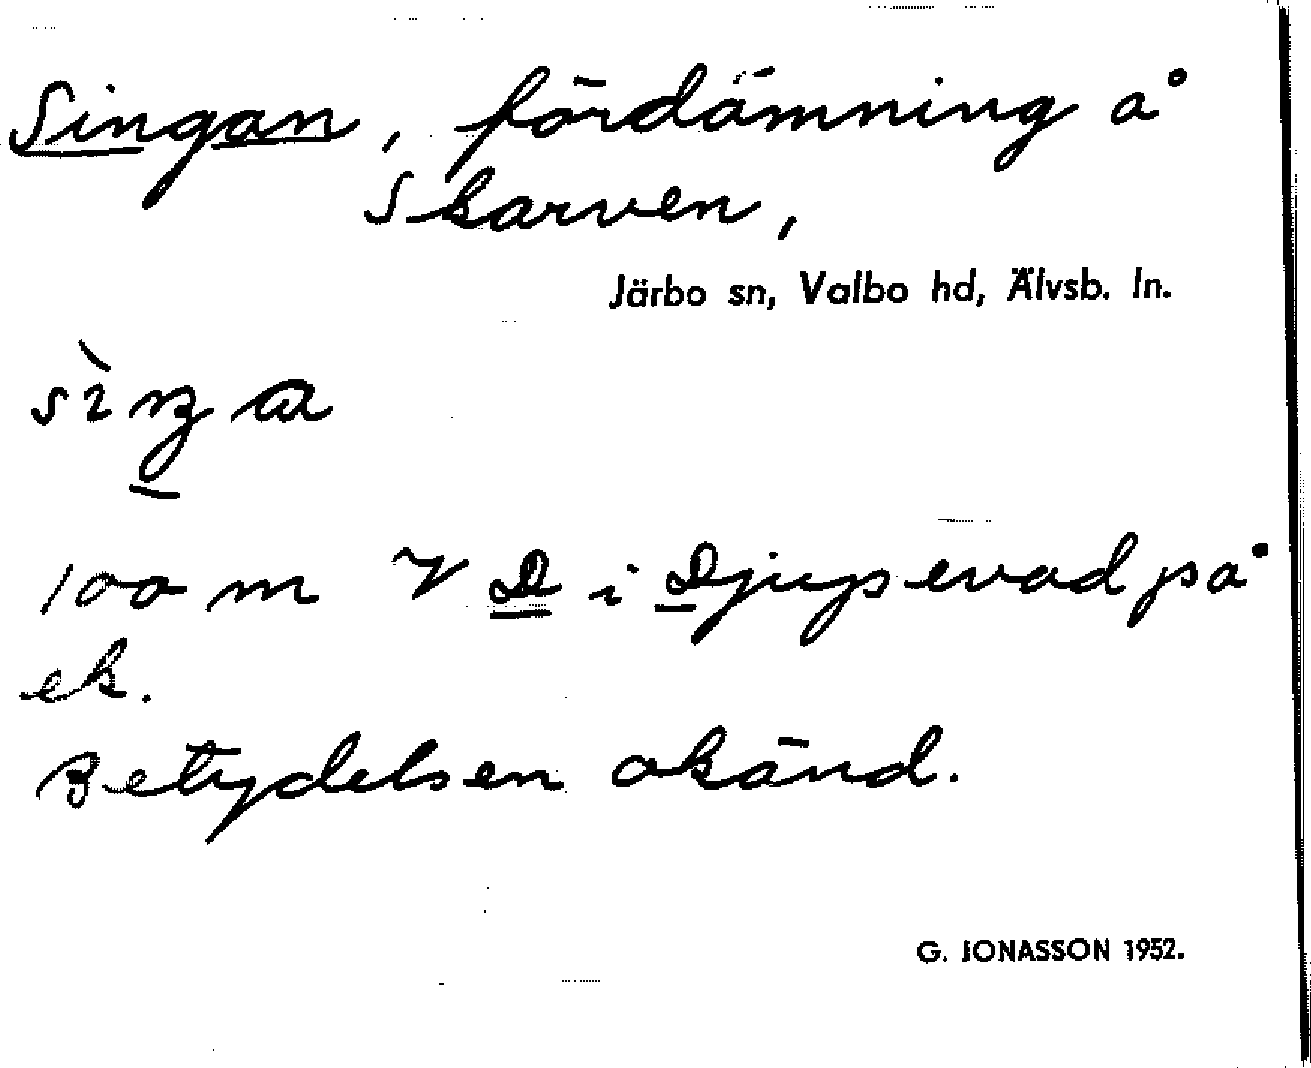 Singan, fördämning å
Skarven,
Järbo sn, Valbo hd, Älvsb. ln.
100 m V D i Djupevad på
ek.
Betydelsen okänd.
G. JONASSON 1952.